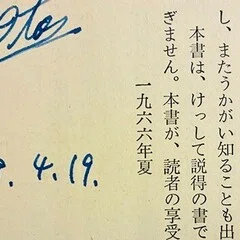 し、またうかがい知ることも出
本書は、けっして説得の書で
ぎません。本書が、読者の享受
一九六六年夏
4.19.